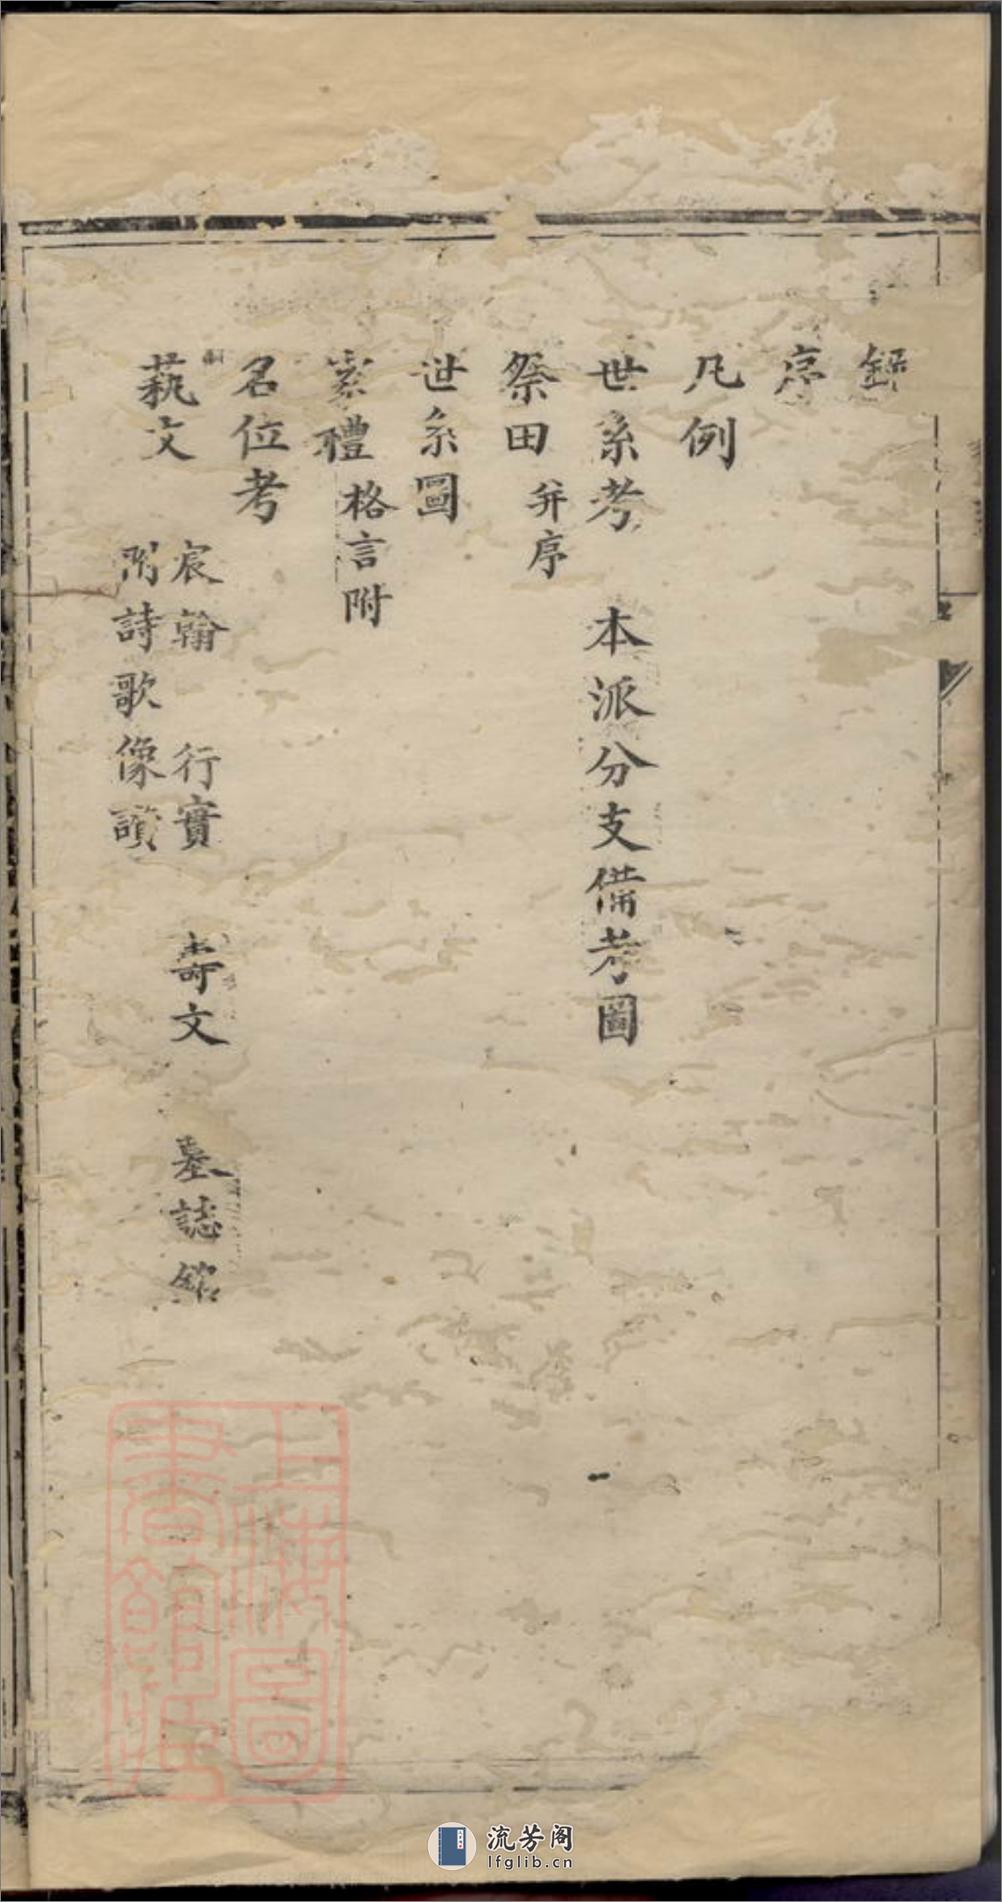 錄
序
凡例
世系考 本派分支備考圖
祭田 并序
世系圖
家禮 格言附
名位考
藝文 宸翰 行實 壽文 墓誌銘
附詩歌像讚
上海圖
書館藏
流芳阁
lfglib.cn